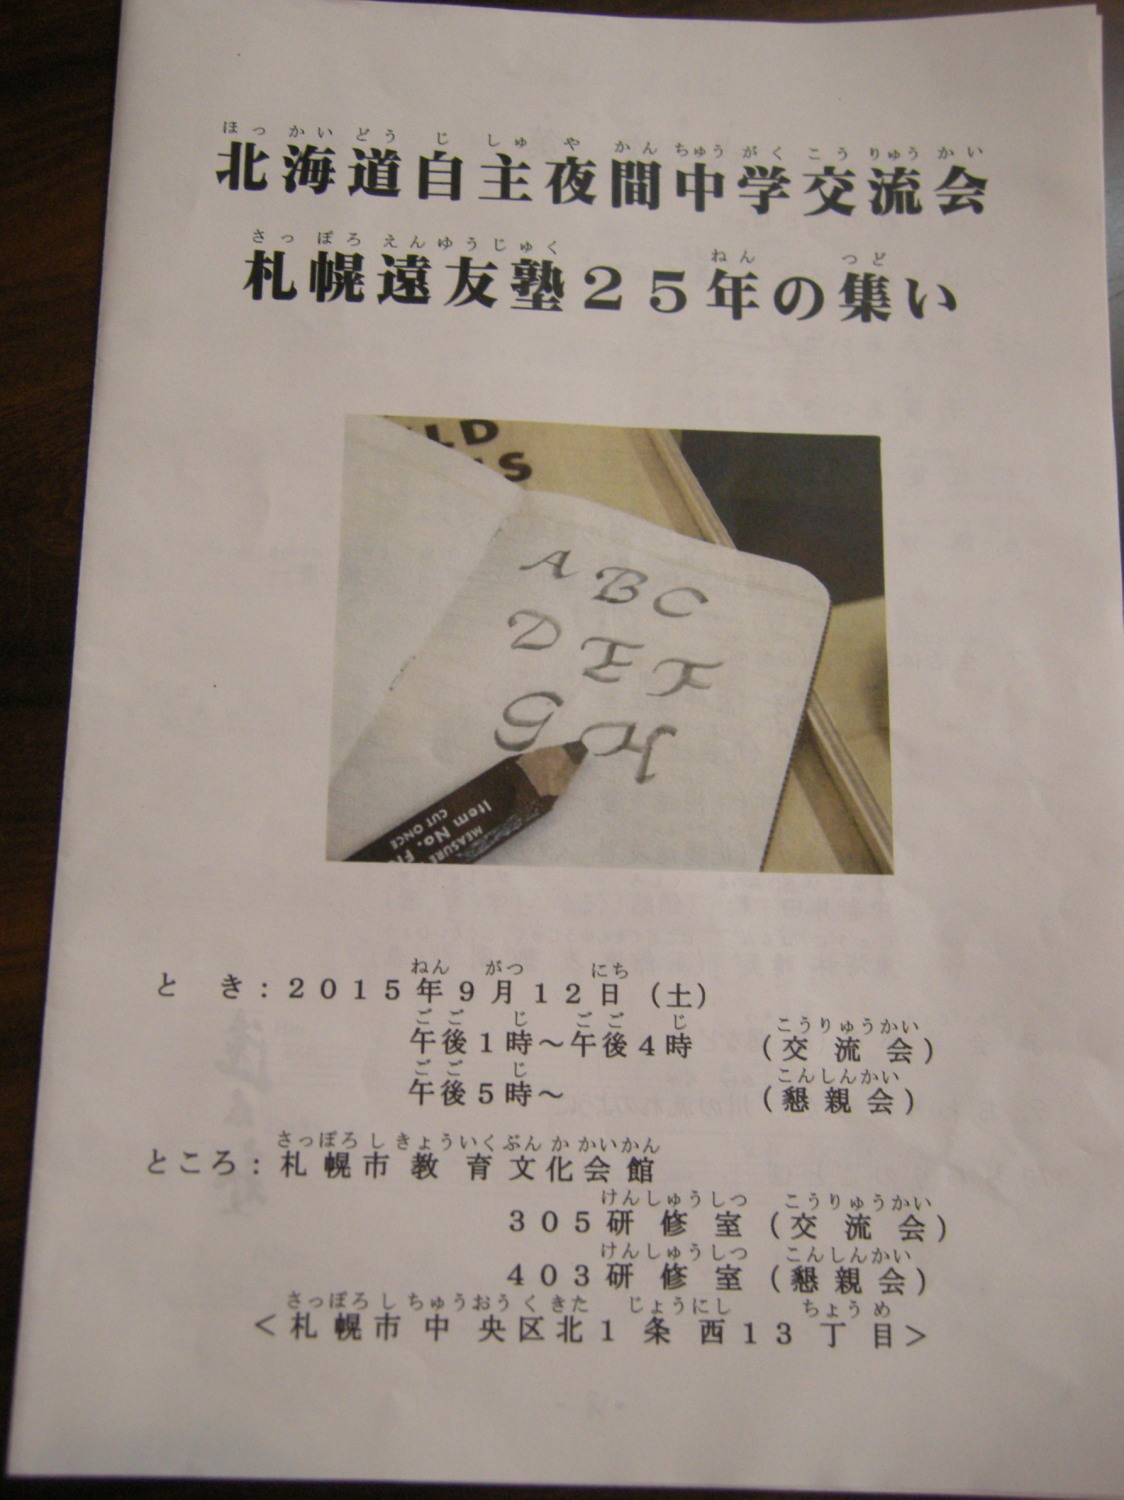 ほっかいどうじしゅやかんちゅうがくこうりゅうかい
北海道自主夜間中学交流会
さっぽろえんゆうじゅく ねん つど
札幌遠友塾25年の集い
LD
IS
A B C
D E F
G H
MEASURE
Item No. F
CUT ONCE
ねん がつ にち
とき：2015年9月12日（土）
ごご じ ごご じ こうりゅうかい
午後1時～午後4時 （交流会）
ごご じ こんしんかい
午後5時～ （懇親会）
さっぽろしきょういくぶんかかいかん
ところ：札幌市教育文化会館
けんしゅうしつ こうりゅうかい
305研修室（交流会）
けんしゅうしつ こんしんかい
403研修室（懇親会）
さっぽろしちゅうおうくきた じょうにし ちょうめ
＜札幌市中央区北1条西13丁目＞